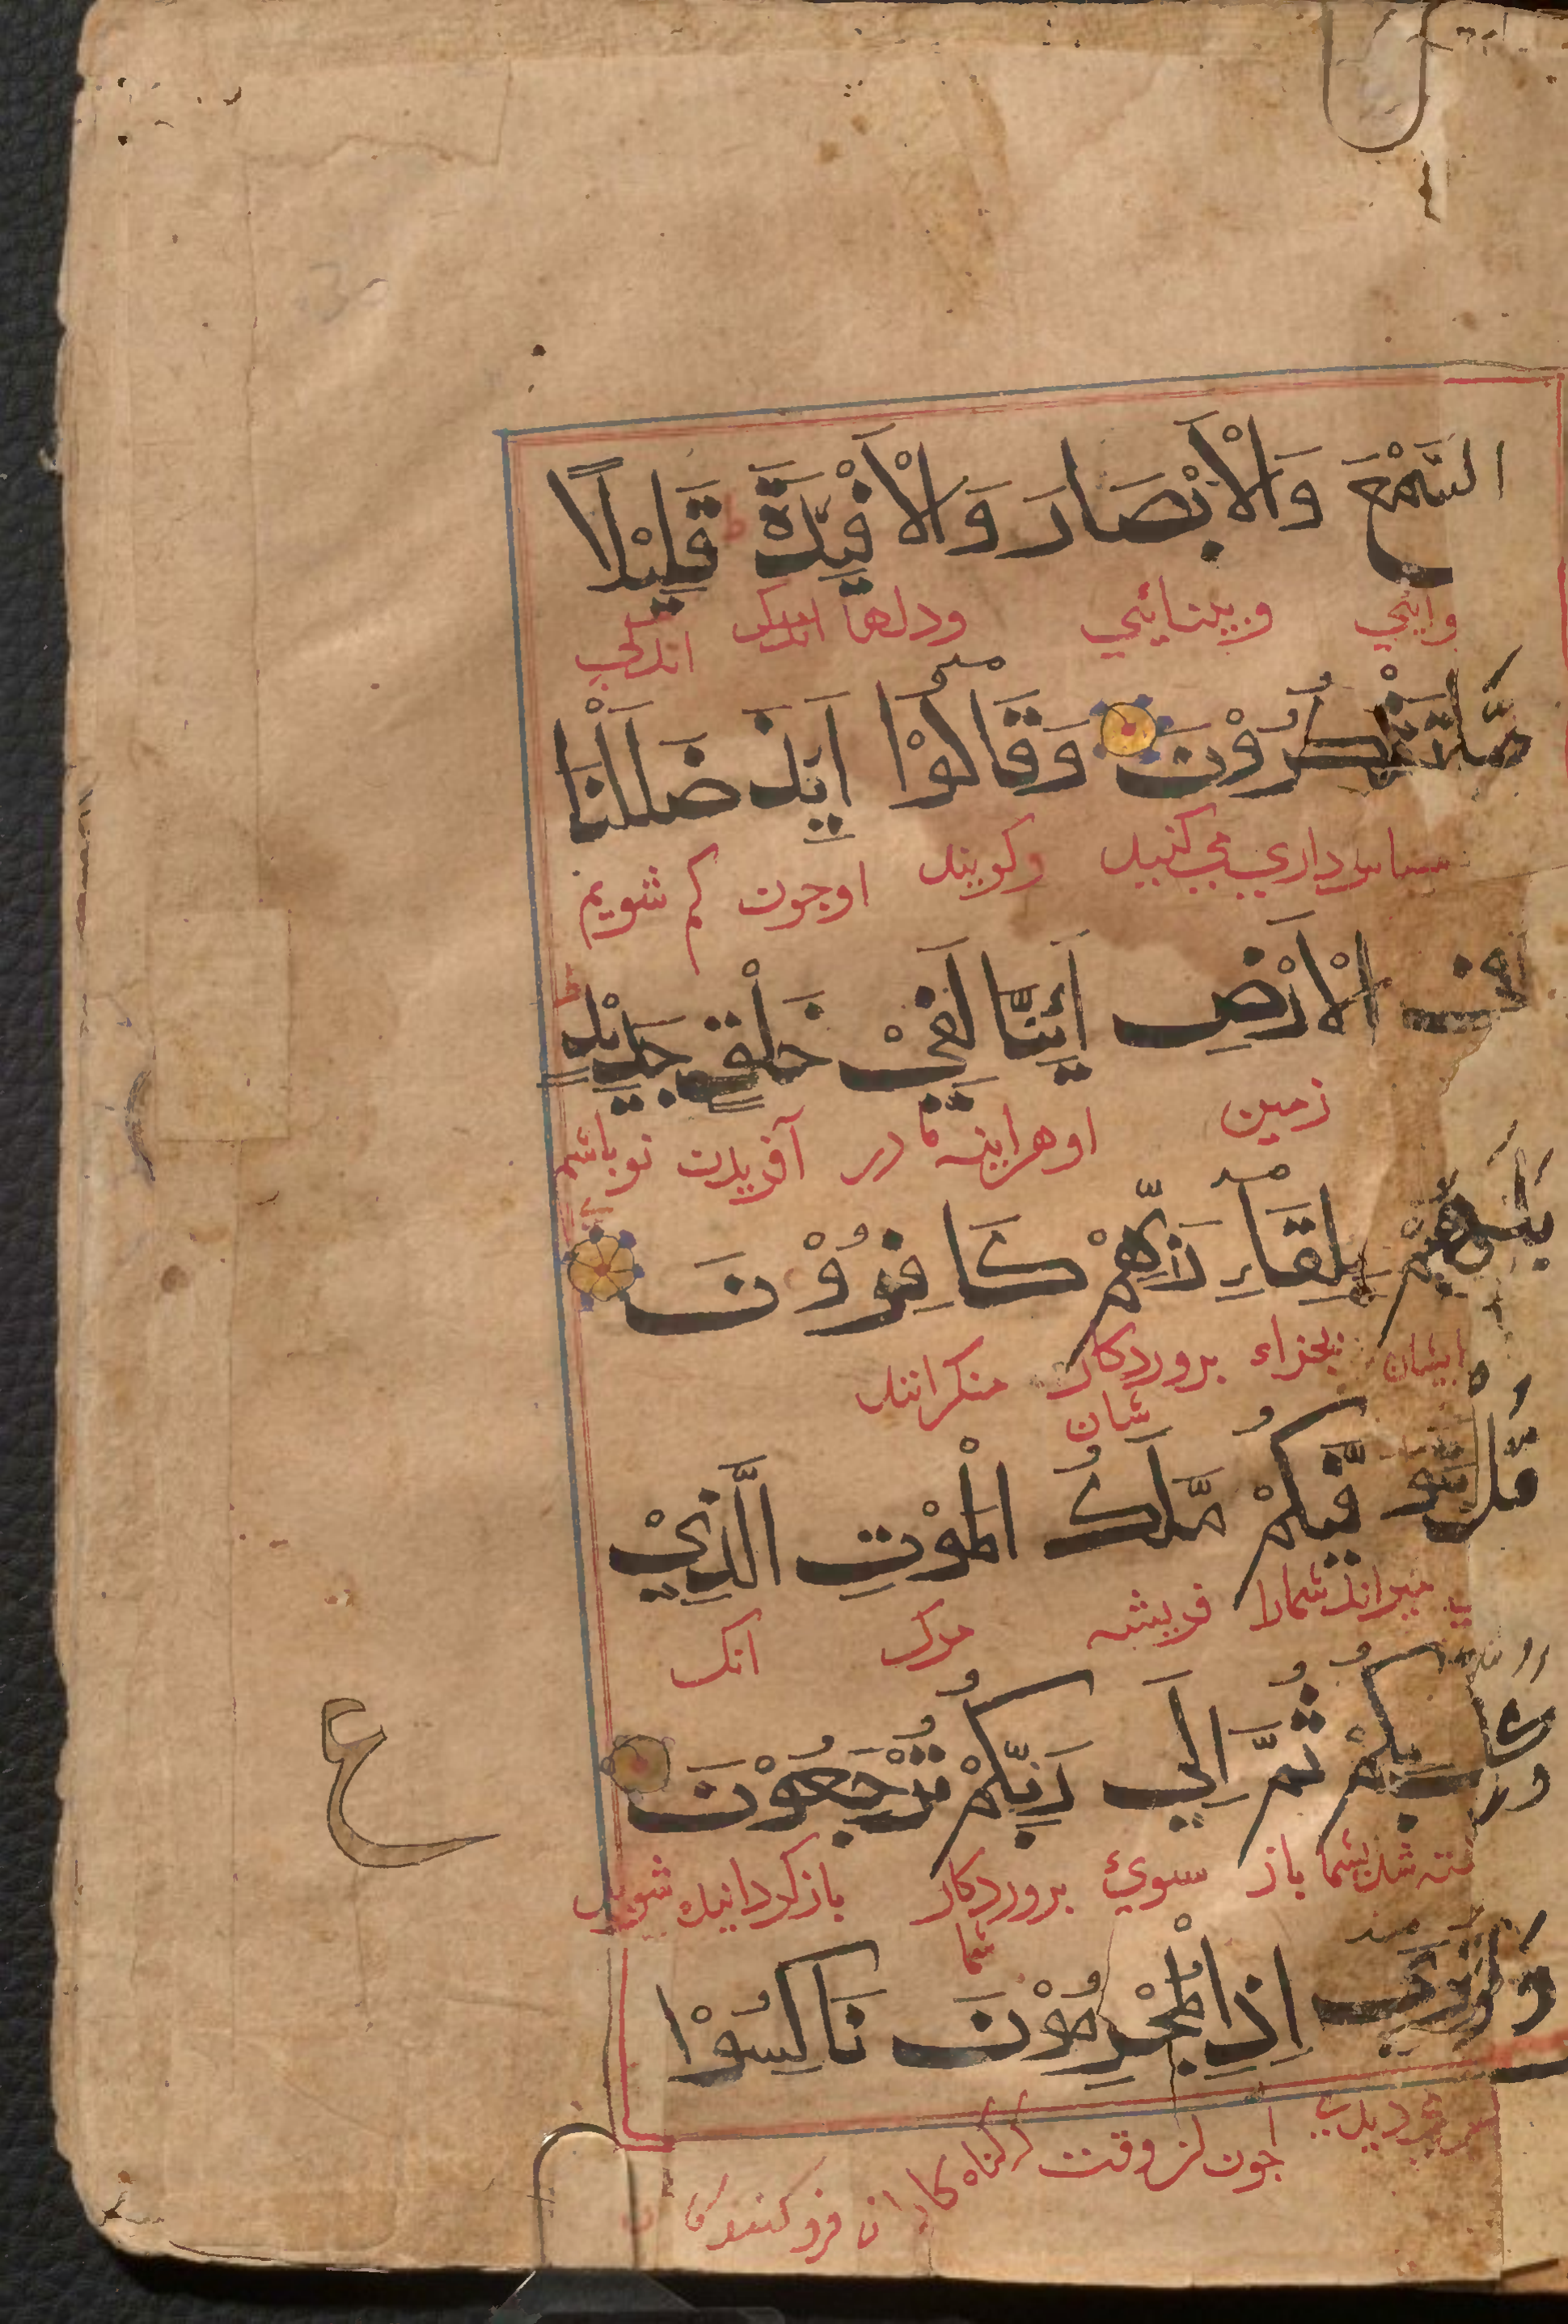 السَّمْعَ وَالْاَبْصَارَ وَالْاَفْئِدَةَ ط قَلِيْلًا
وبينائي ودلها اندكي
مَّا تَشْكُرُوْنَ وَقَالُوْا اَئِذَا ضَلَلْنَا
سپاس داري مي كنيد وكويند اوجون كم شويم
فِي الْاَرْضِ اَئِنَّا لَفِيْ خَلْقٍ جَدِيْدٍ ط
زمين اوهراينه ما در آفريدن نو باشيم
بَلْ هُمْ بِلِقَاءِ رَبِّهِمْ كَافِرُوْنَ
ايشان بجزاء بروردكار منكرانند
شان
قُلْ يَتَوَفَّيكُمْ مَّلَكُ الْمَوْتِ الَّذِيْ
ميراند شمارا فريشه مرك انك
وُكِّلَ بِكُمْ ثُمَّ اِلَي رَبِّكُمْ تُرْجَعُوْنَ
شد بشما باز سوئ بروردكار بازكردانيده شويد
شما
ع
وَلَوْ تَرَي اِذِ الْمُجْرِمُوْنَ نَاكِسُوْا
جون كناه كاران فرو كنندكان